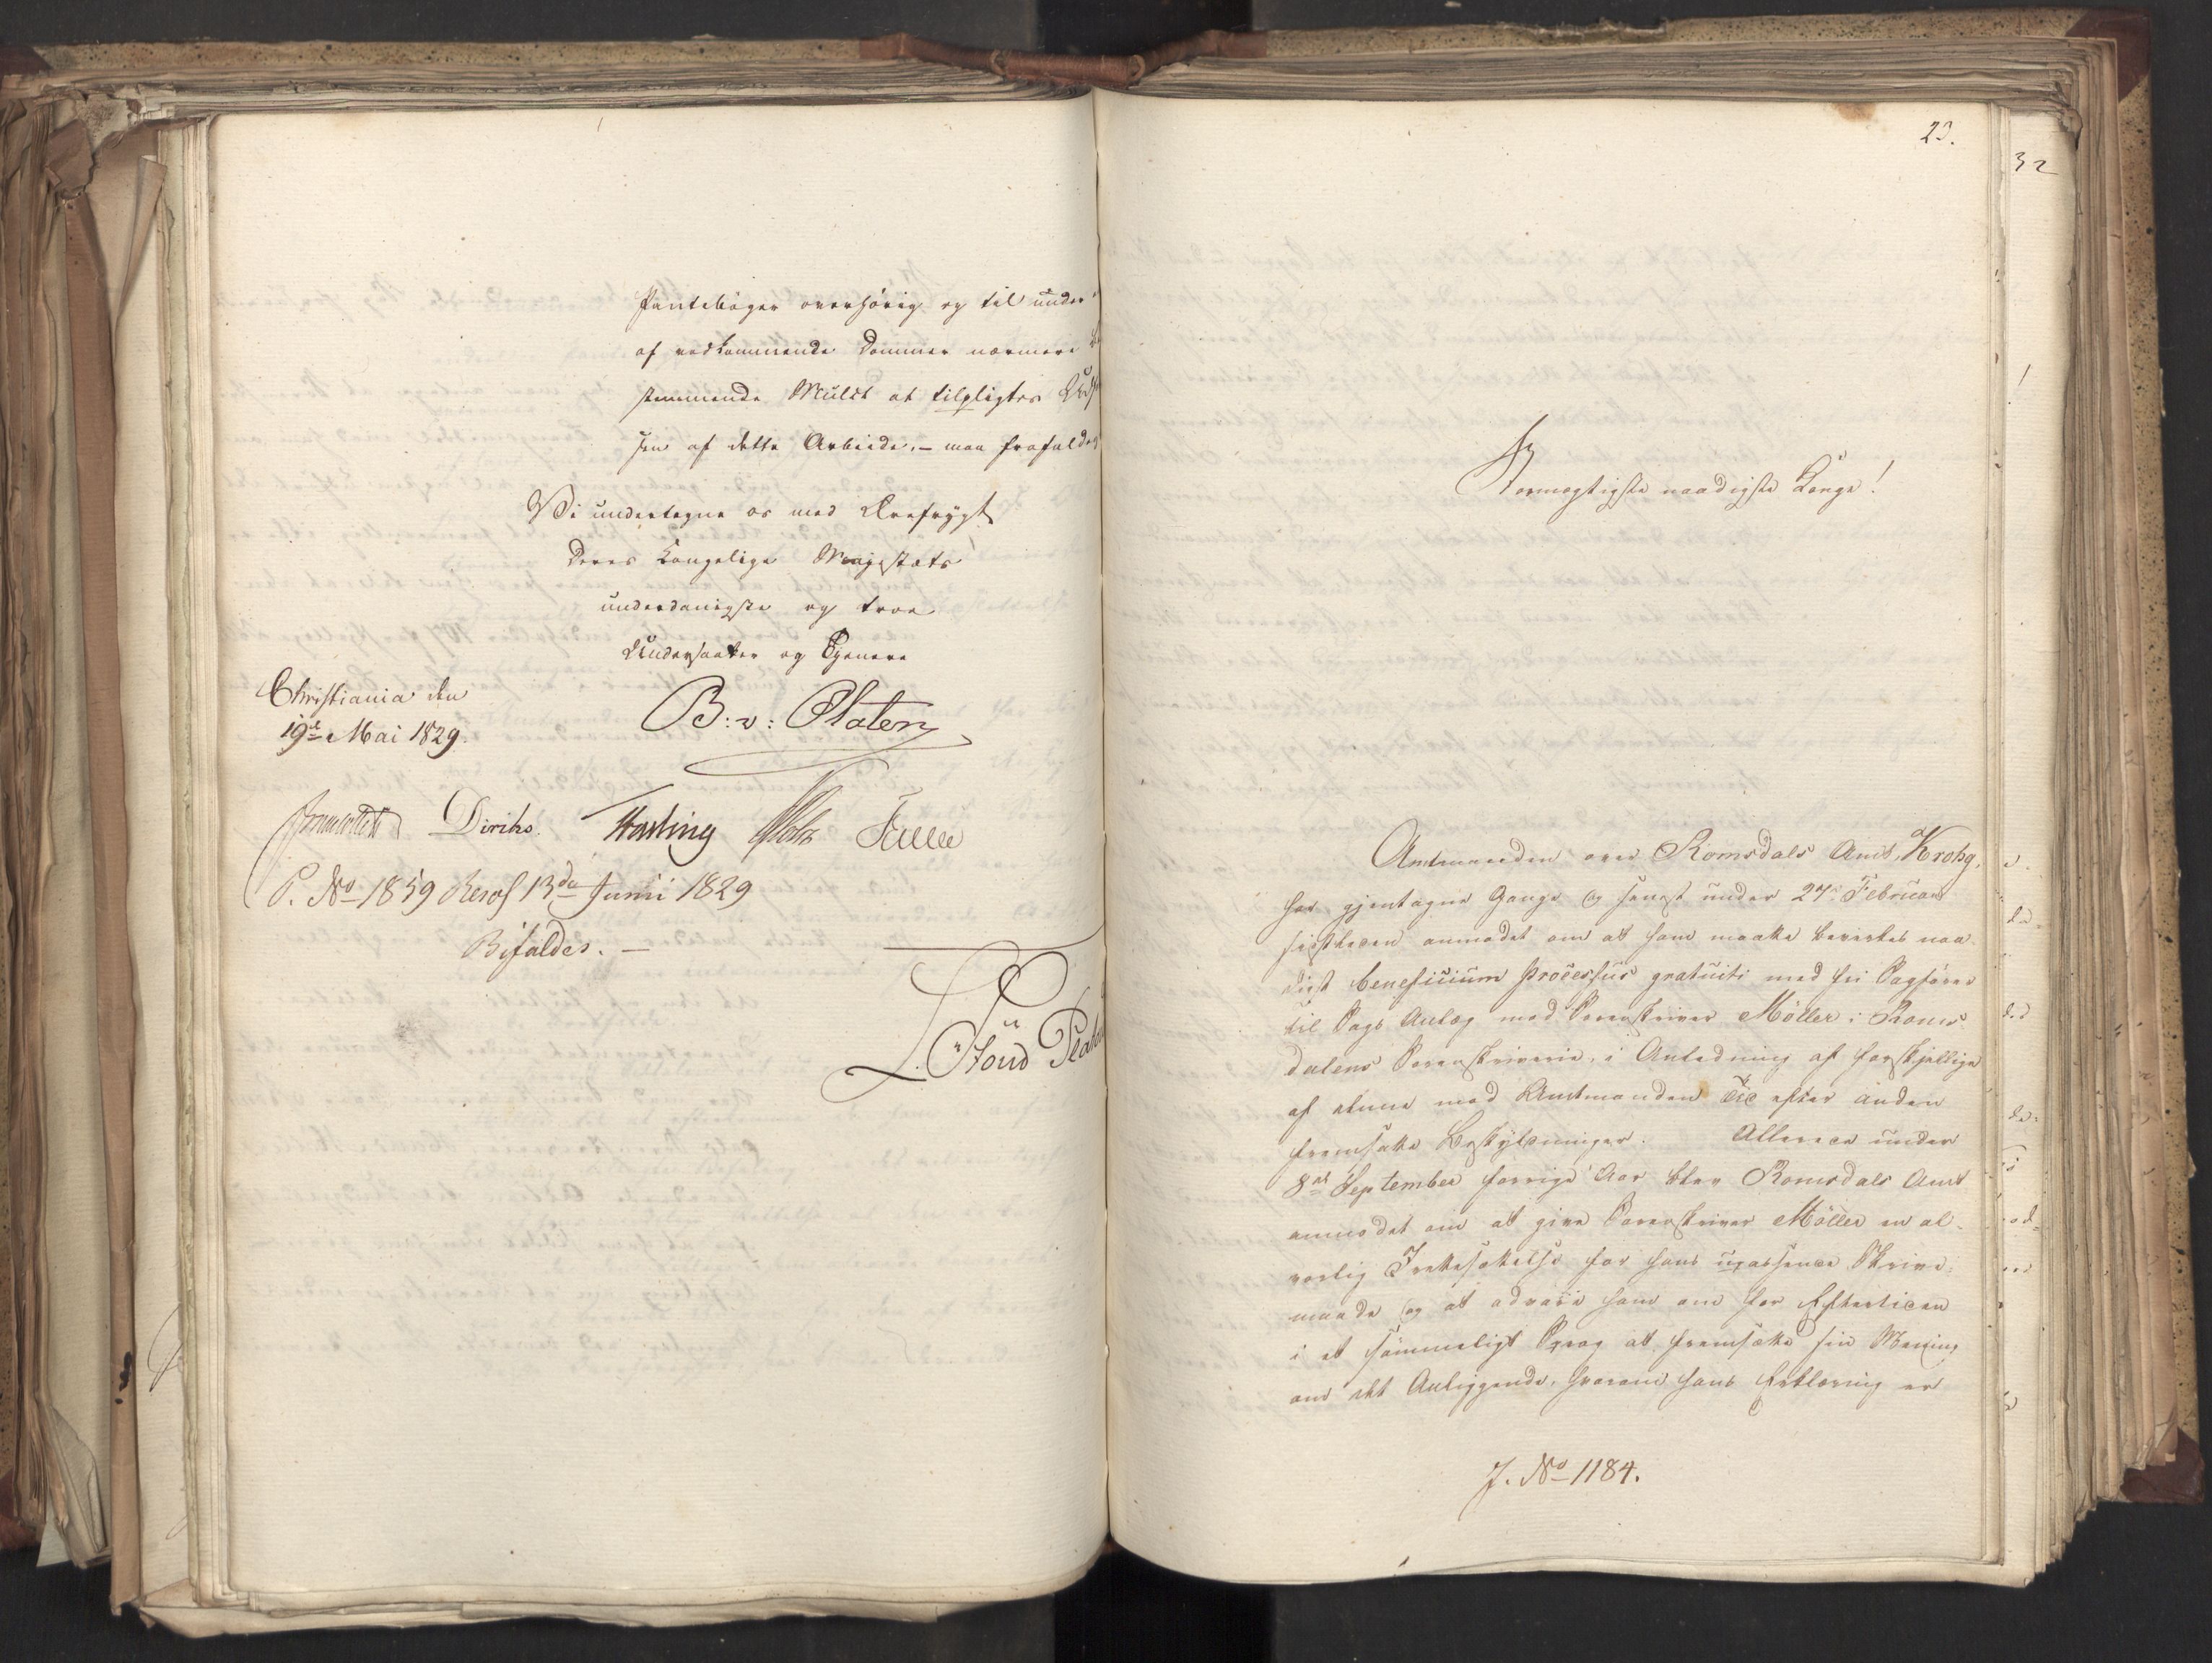 Pantebøger overhørig og til under
af vedkommende Dommer nærmere be
stemmende Mulct at tilpligtes Udf
sen af dette Arbeide, – maa frafaldes
Vi undertegne os med Ærefrygt
Deres Kongelige Majestæts
underdanigste og troe
Undersaatter og Tjenere
B: v: Platen
Christiania den
19de Mai 1829.
Diriks. Fasting Holst
P. No 1859 Resol 13de Junii 1829
Bifaldes. –
23.
32
Stormægtigste naadigste Konge!
Amtmanden over Romsdals Amt, Krohg,
har gjentagne Gange og senest under 27. Februar
sidstleden anmodet om at ham maatte bevirkes naa-
digst beneficium processus gratuiti med fri Sagfører
til Sags Anlæg mod Sorenskriver Möller i Roms-
dalens Sorenskriverie, i Anledning af forskjellige
af denne mod Amtmanden Tid efter anden
fremsatte Beskyldninger. Allerede under
8de September forrige Aar blev Romsdals Amt
anmodet om at give Sorenskriver Möller en al-
vorlig Irettesættelse for hans upassende Skrive-
maade og at advare ham om for Eftertiden
i et sømmeligt Sprog at fremsætte sin Mening
om det Anliggende, hvorom hans Erklæring er
J. No 1184.